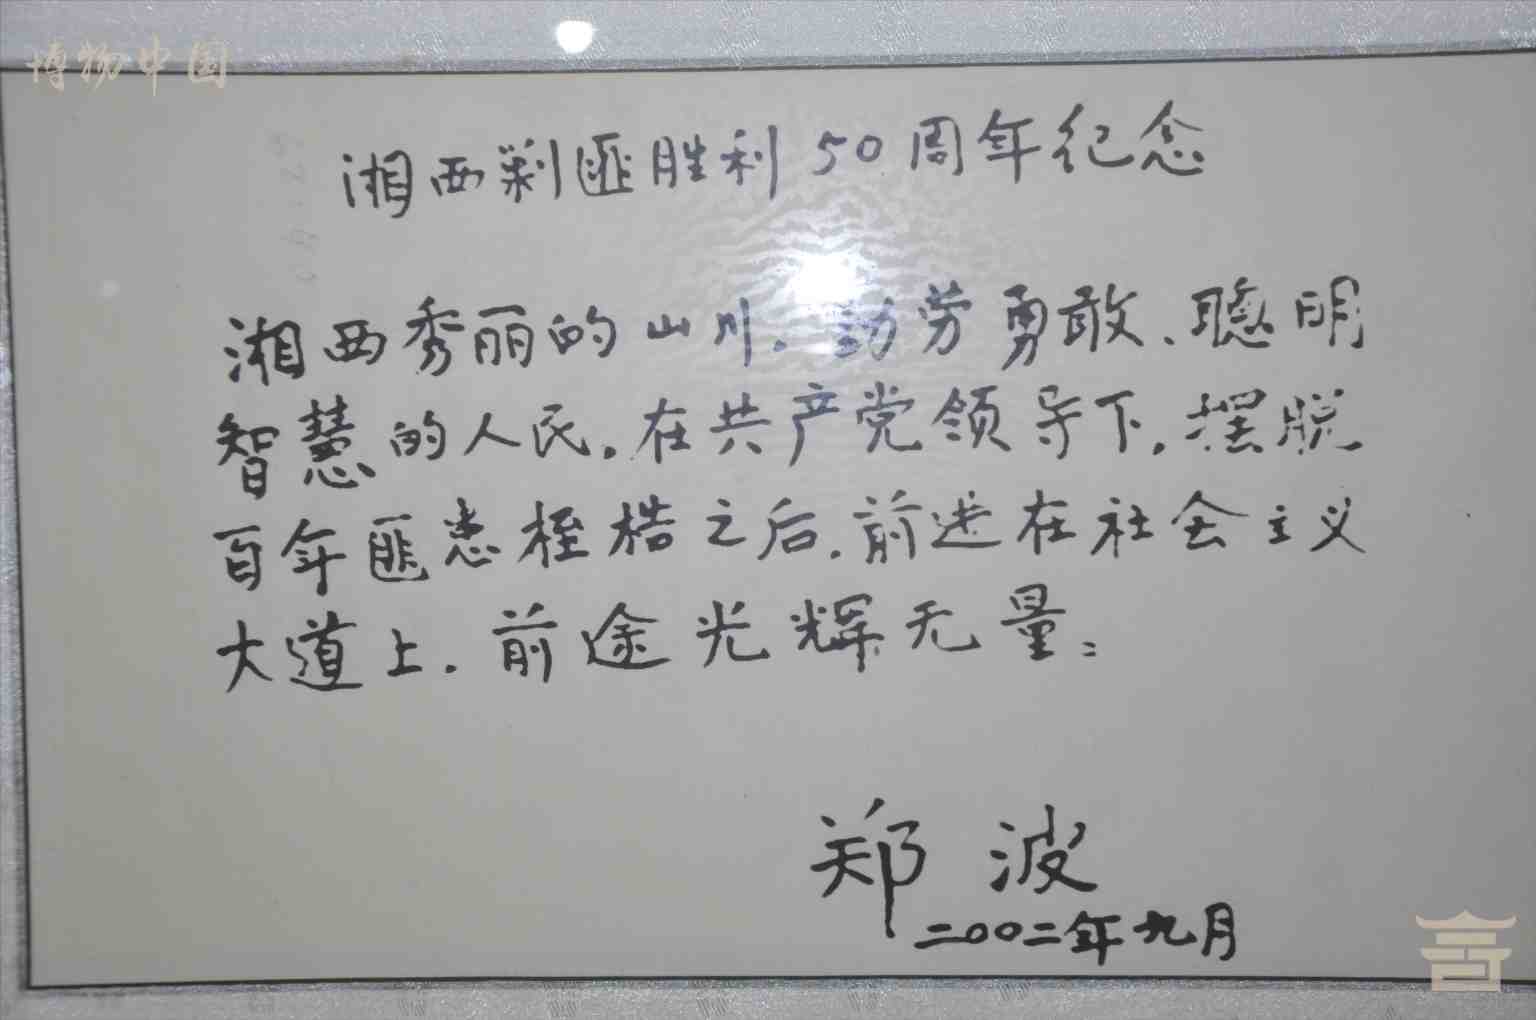 博物中国
湘西剿匪胜利50周年纪念
湘西秀丽的山川，勤劳勇敢、聪明
智慧的人民，在共产党领导下，摆脱
百年匪患桎梏之后，前进在社会主义
大道上，前途光辉无量：
郑波
二〇〇二年九月